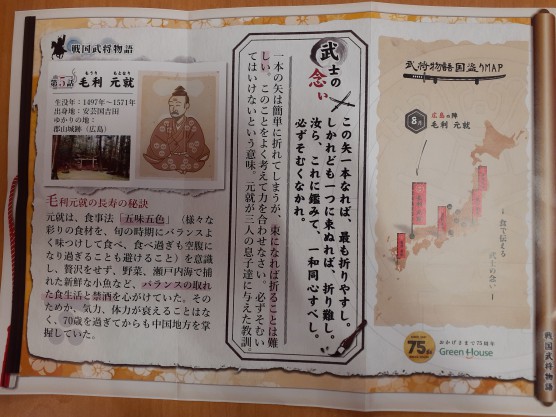 戦国武将物語
第5話
もうり もとなり
毛利 元就
生没年：1497年〜1571年
出身地：安芸国吉田
ゆかりの地：
郡山城跡（広島）
毛利元就の長寿の秘訣
元就は、食事法「五味五色」（様々な
彩りの食材を、旬の時期にバランスよ
く味つけして食べ、食べ過ぎも空腹に
なり過ぎることも避けること）を意識
し、贅沢をせず、野菜、瀬戸内海で捕
れた新鮮な小魚など、バランスの取れ
た食生活と禁酒を心がけていた。そ
のためか、気力、体力が衰えることはな
く、70歳を過ぎてからも中国地方を掌
握していた。
武士の念い
この矢一本なれば、最も折りやすし。
しかれども一つに束ぬれば、折り難し。
汝ら、これに鑑みて、一和同心すべし。
必ずそむくなかれ。
一本の矢は簡単に折れてしまうが、束になれば折ることは難
しい。このことをよく考えて力を合わせなさい。必ずそむい
てはいけないという意味。元就が三人の息子達に与えた教訓。
武将物語国盗りMAP
8月
広島の陣
毛利 元就
食で伝える
武士の念い
75th
おかげさまで75周年
Green House
戦国武将物語